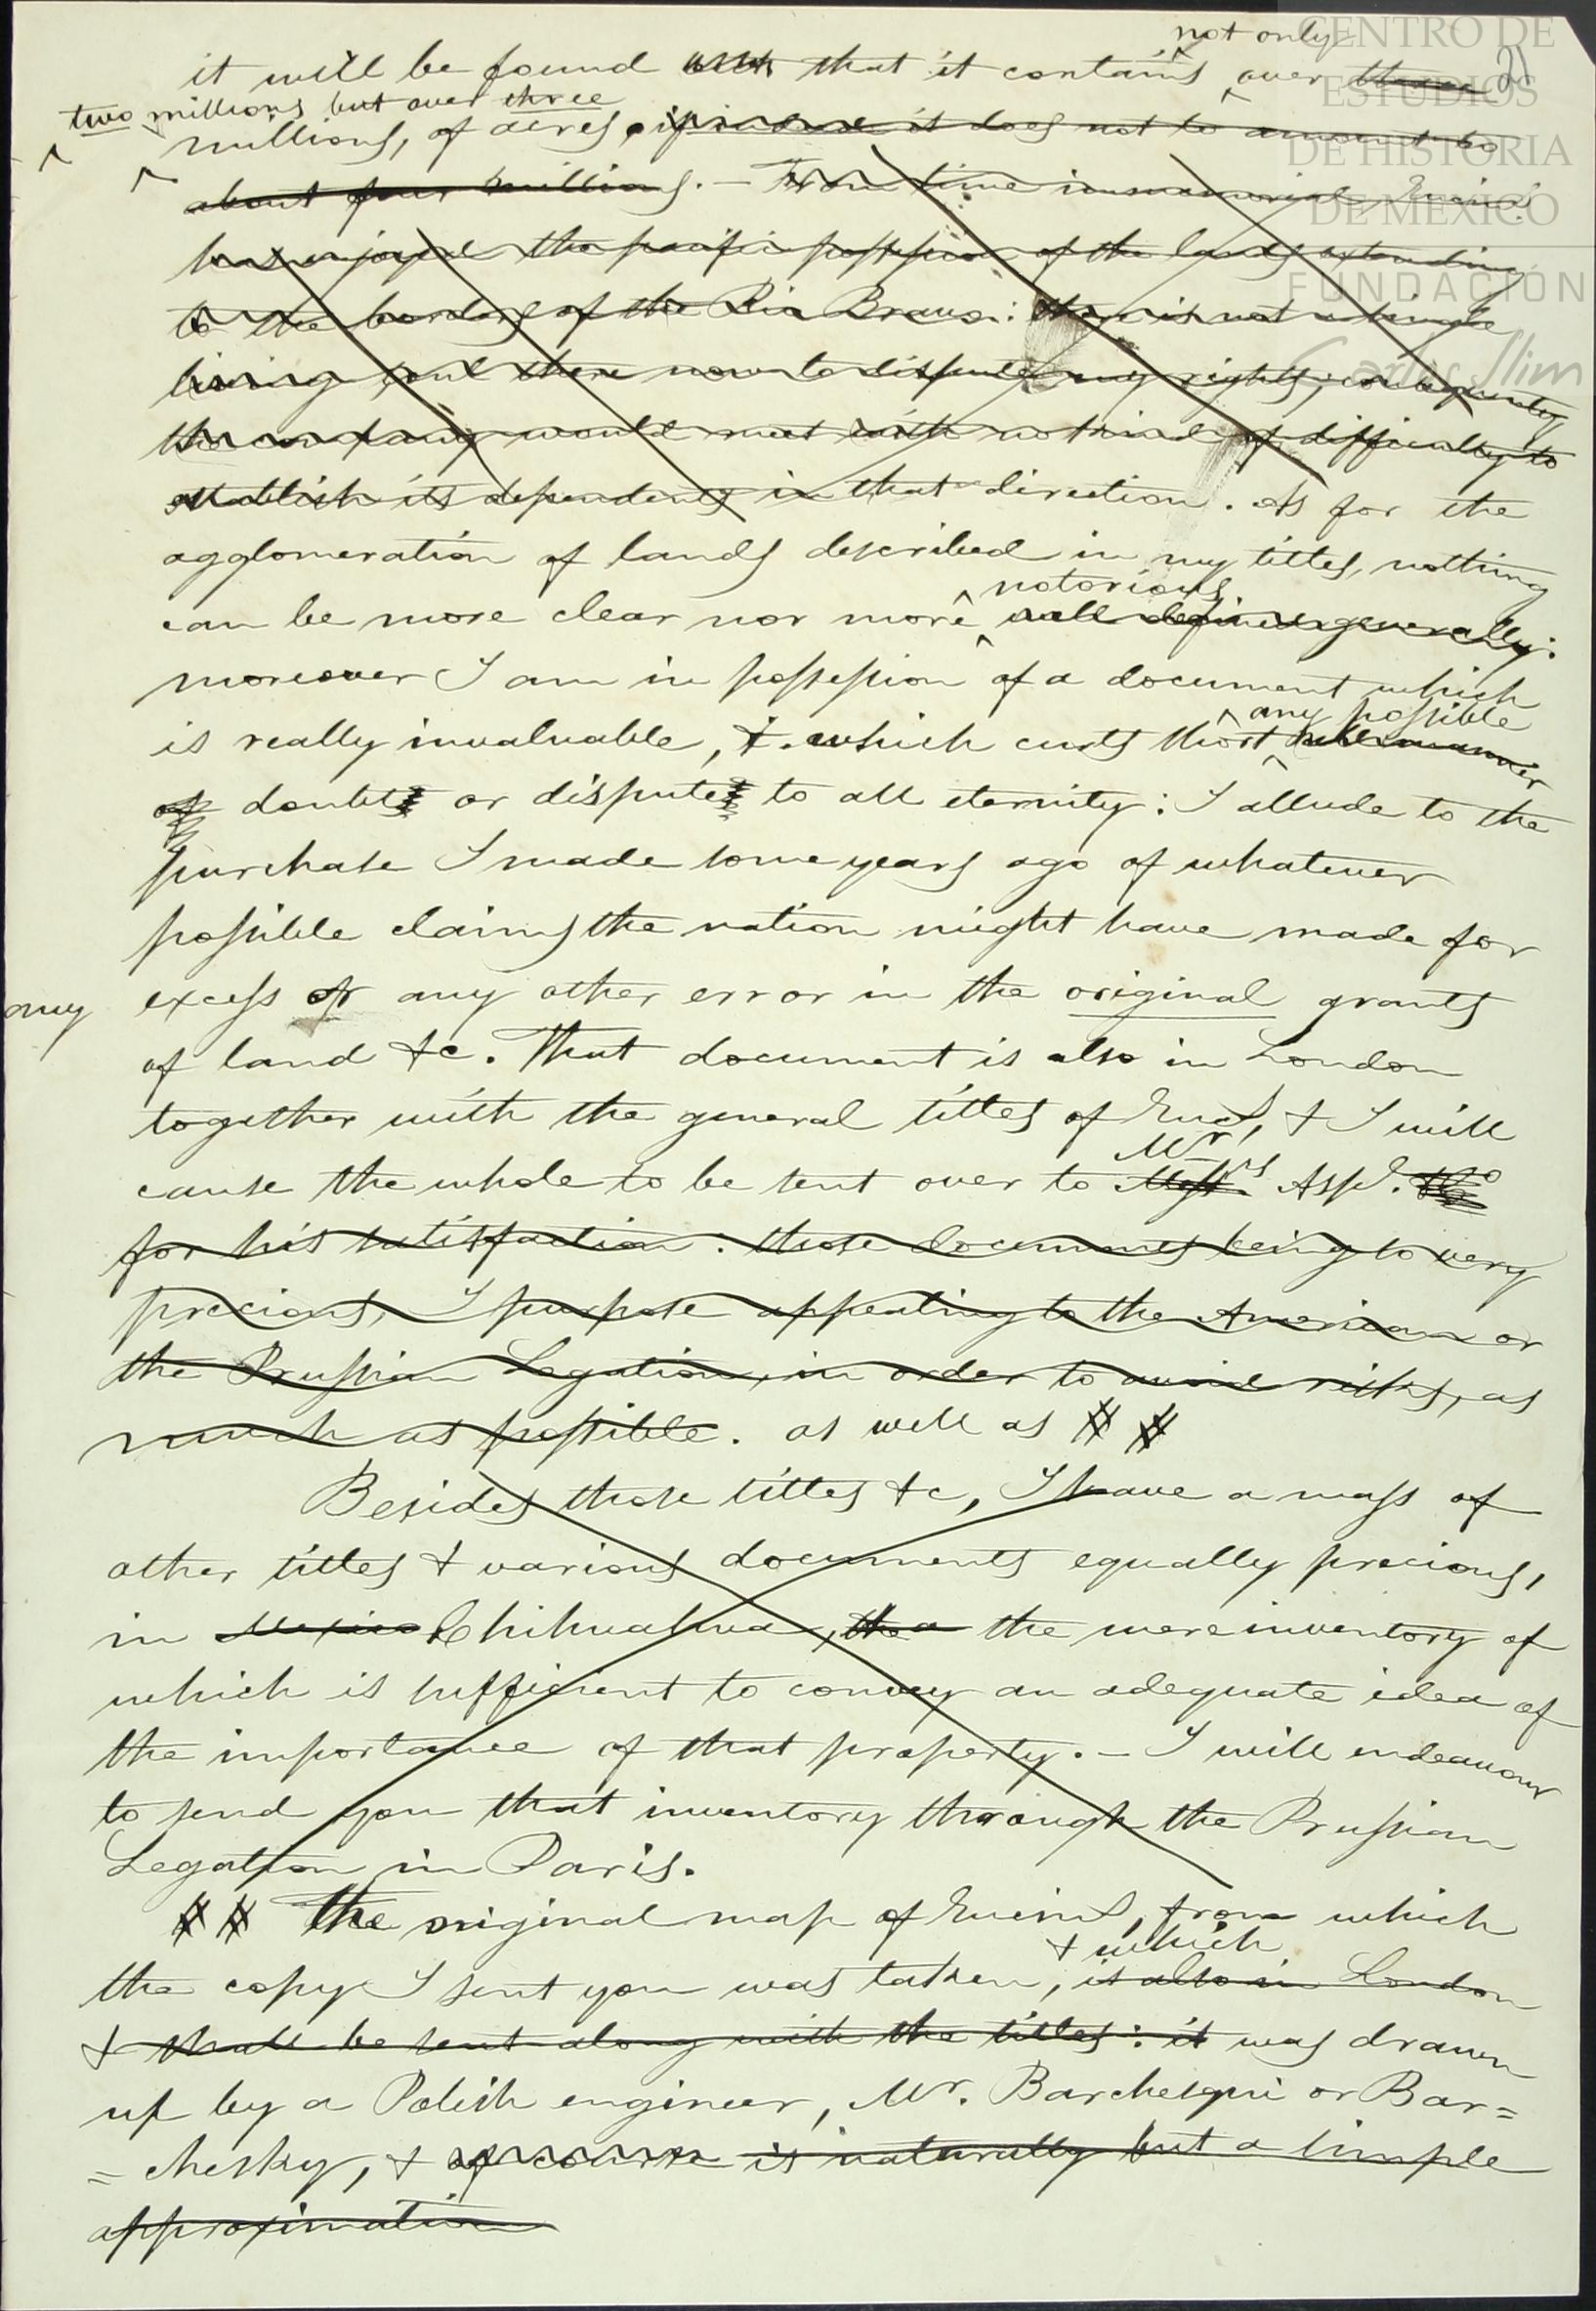 not only
it will be found that it contains over three 21
two millions but over three
millions, of acres, if indeed it does not to amount to
about four millions. – From time immemorial, Encinillas
has enjoyed the pacific possession of the lands extending
to the borders of the Rio Bravo: there is not a single
living soul there now to dispute my rights; consequently
the company would meet with no kind of difficulty to
establish its dependents in that direction. As for the
agglomeration of lands described in my titles, nothing
notorious
can be more clear nor more well defined generally:
moreover I am in possession of a document which
any possible
is really invaluable, & which cuts short all manner
of doubts or disputes to all eternity: I allude to the
purchase I made some years ago of whatever
possible claims the nation might have made for
my excess or any other error in the original grants
of land &c. That document is also in London
together with the general titles of Encs, & I will
Mr
cause the whole to be sent over to Messrs Aspl.
for his satisfaction: those documents being so very
precious, I purpose appealing to the American or
the Prussian Legation, in order to avoid risks, as
much as possible. as well as # #
Besides those titles &c, I have a mass of
other titles & various documents equally precious,
in Mexico Chihuahua, the mere inventory of
which is sufficient to convey an adequate idea of
the importance of that property. – I will endeavour
to send you that inventory through the Prussian
Legation in Paris.
# # The original map of from which
& which
the copy I sent you was taken, is also in London
& shall be sent along with the titles: it was drawn
up by a Polish engineer, Mr. Barchesqui or Bar=
=chesky, & of course is naturally but a simple
approximation
CENTRO DE
ESTUDIOS
DE HISTORIA
DE MEXICO
FUNDACIÓN
Carlos Slim